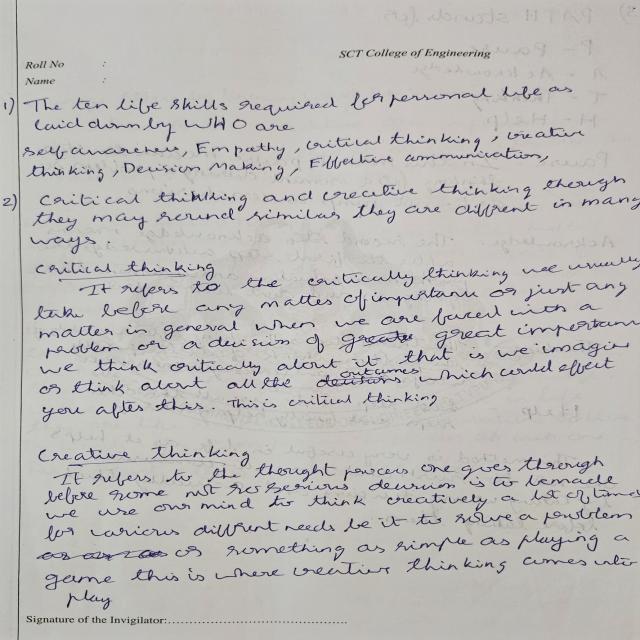 SCT College of Engineering
Roll No :
Name :
1) The ten life skills required for personal life as
laid down by WHO are
self awareness, Empathy, critical thinking, creative
thinking, Decision Making, Effective communication,
2) Critical thinking and creative thinking though
they may sound similar they are diffrent in many
ways.
Critical thinking
It refers to the critically thinking we usually
take before any matter of importance or just any
matter in general when we are faced with a
problem or a decision of great importance
we think critically about it that is we imagine
or think about all the outcomes which could effect
you after this. This is critical thinking
Creative thinking
It refers to the thought process one goes through
before some not so serious decision is to be made
we use our mind to think creatively a lot of times
for various diffrent needs be it to solve a problem
or something as simple as playing a
game this is where creative thinking comes into
play
Signature of the Invigilator: